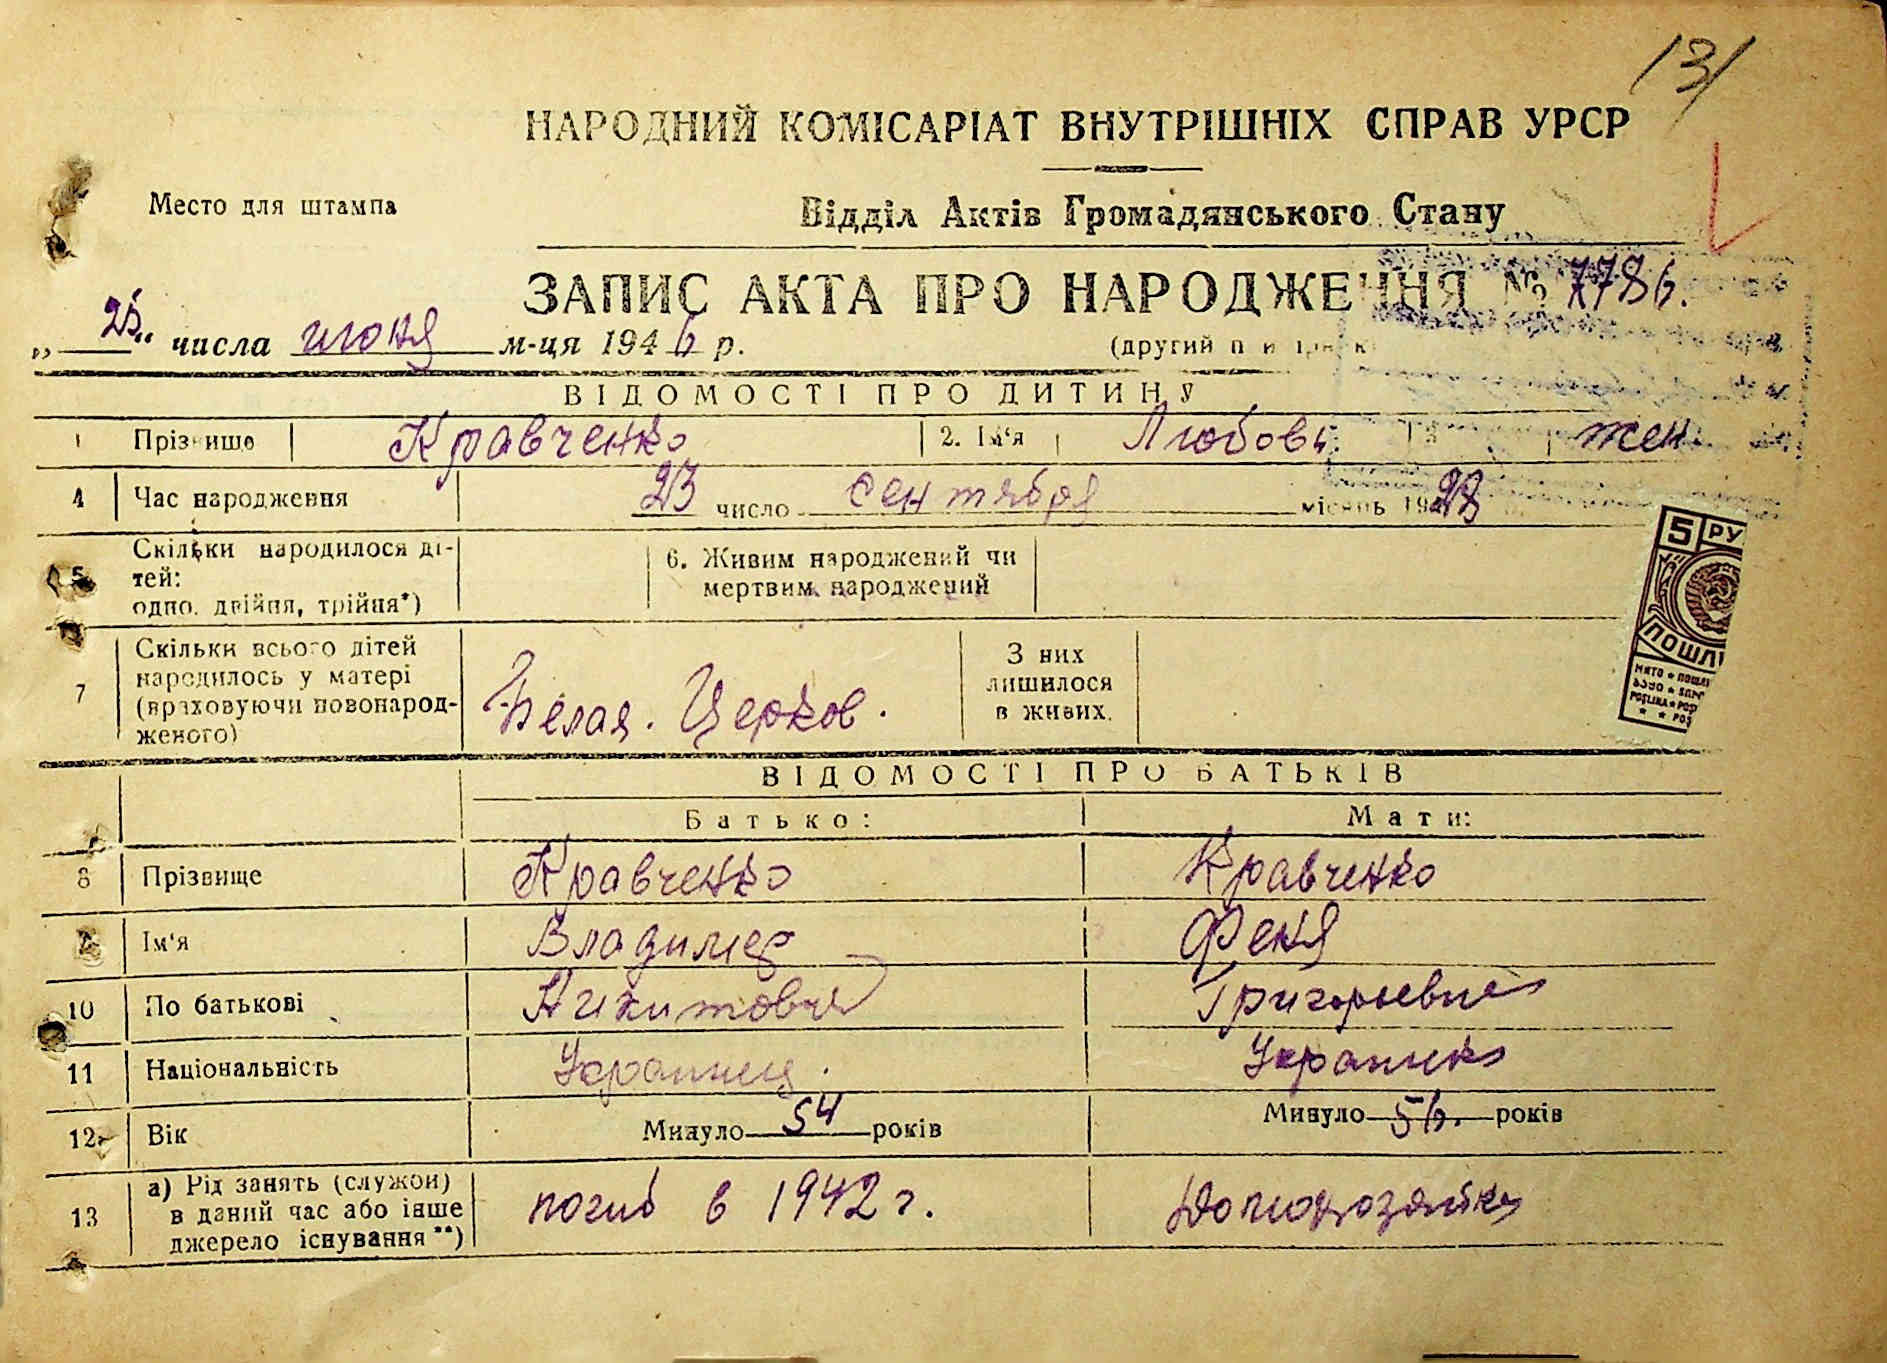 131
НАРОДНИЙ КОМІСАРІАТ ВНУТРІШНІХ СПРАВ УРСР
Место для штампа
Відділ Актів Громадянського Стану
ЗАПИС АКТА ПРО НАРОДЖЕННЯ № 7786.
„25“ числа июня м-ця 1946 р.
(другий
ВІДОМОСТІ ПРО ДИТИНУ
1 Прізвище Кравченко 2. Ім'я Любовь 3 жен.
4 Час народження 23 число сентября місяць 1928
5 Скільки народилося ді-
тей:
одно, двійня, трійня*)
6. Живим народжений чи
мертвим народжений
7 Скільки всього дітей
народилось у матері
(враховуючи новонарод-
женого)
Белая. Церков.
З них
лишилося
в живих.
5 РУ
ПОШЛ
ВІДОМОСТІ ПРО БАТЬКІВ
Батько: Мати:
8 Прізвище Кравченко Кравченко
9 Ім'я Владимир Феня
10 По батькові Никитович Григорьевна
11 Національність Украинец. Украинка
12 Вік Минуло 54 років Минуло 56. років
13 а) Рід занять (служби)
в даний час або інше
джерело існування**)
погиб в 1942 г. Домохозяйка